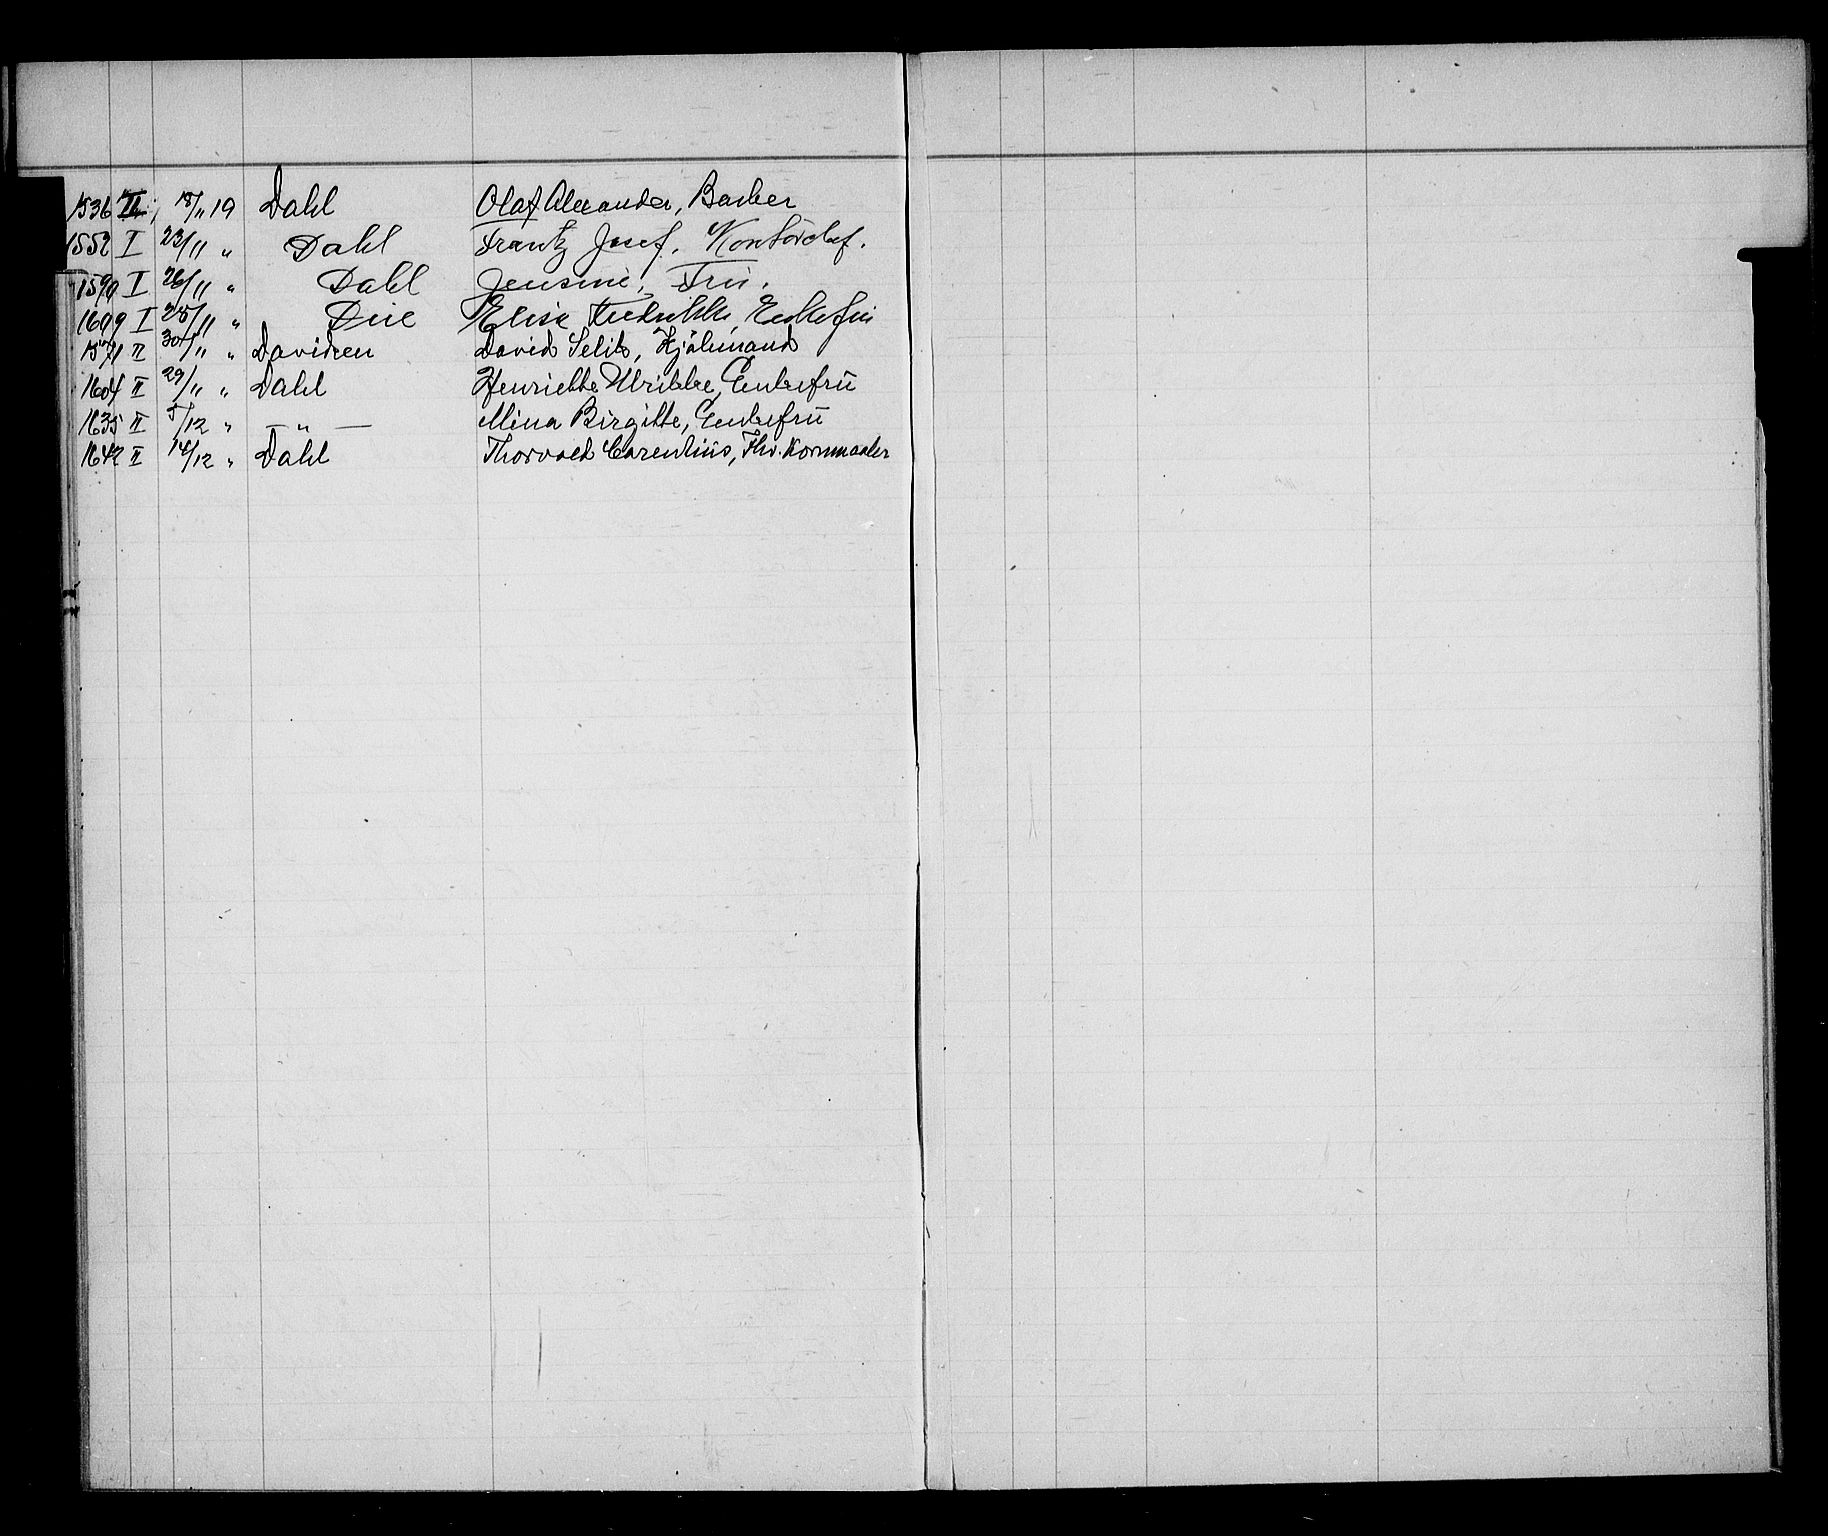 1536 II 18/11 19 Dahl Olaf Alexander, Barber
1552 I 23/11 " Dahl Frantz Josef. Kontorchef.
1590 I 26/11 " Dahl Jensine, Frü.
1609 I 28/11 " Due Elise Fredrikke, Enkefrü
1571 II 30/11 " Davidsen David Selik, Hjälmand
1604 II 29/11 " Dahl Henriette Ulrikke, Enkefrü
1635 II 5/12 " — " — Mina Birgitte, Enkefrü
1642 II 14/12 " Dahl Thorvald Carentius, Fhv. Kornmaaler